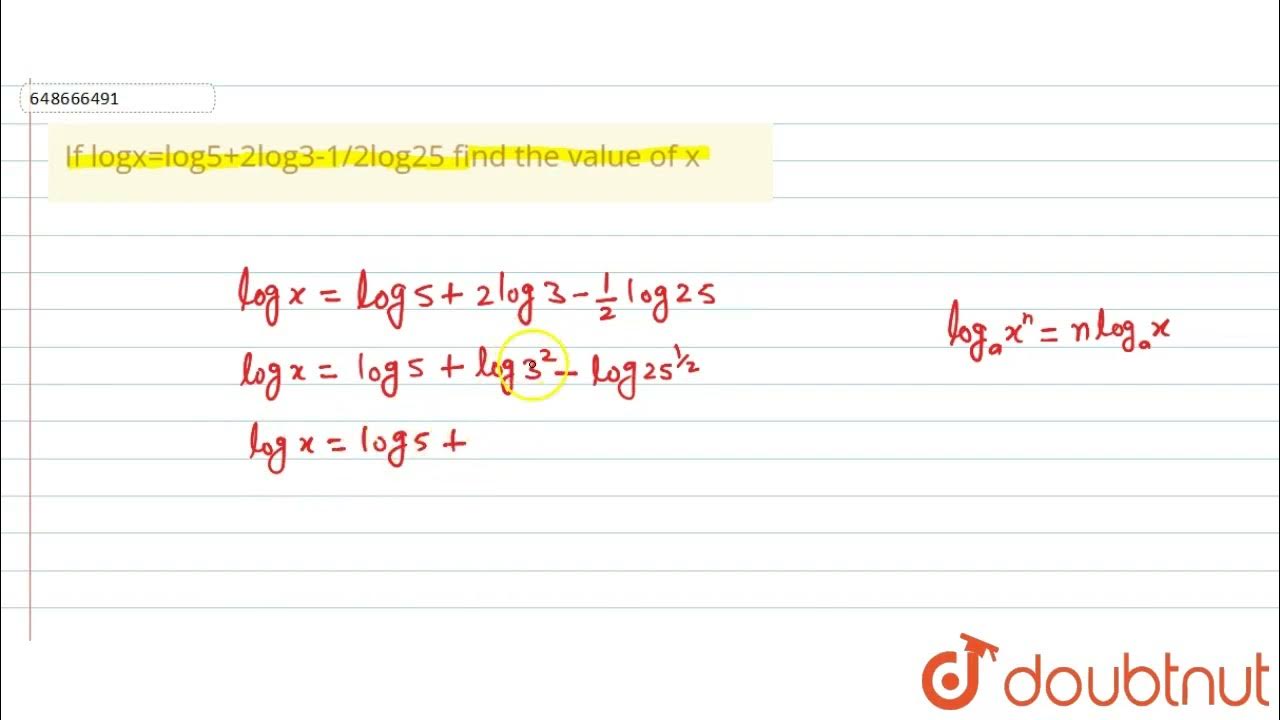 648666491
If logx=log5+2log3-1/2log25 find the value of x
log x = log 5 + 2log 3 - 1/2 log 25
logₐxⁿ = n logₐx
log x = log 5 + log 3² - log 25^1/2
log x = log 5 +
doubtnut